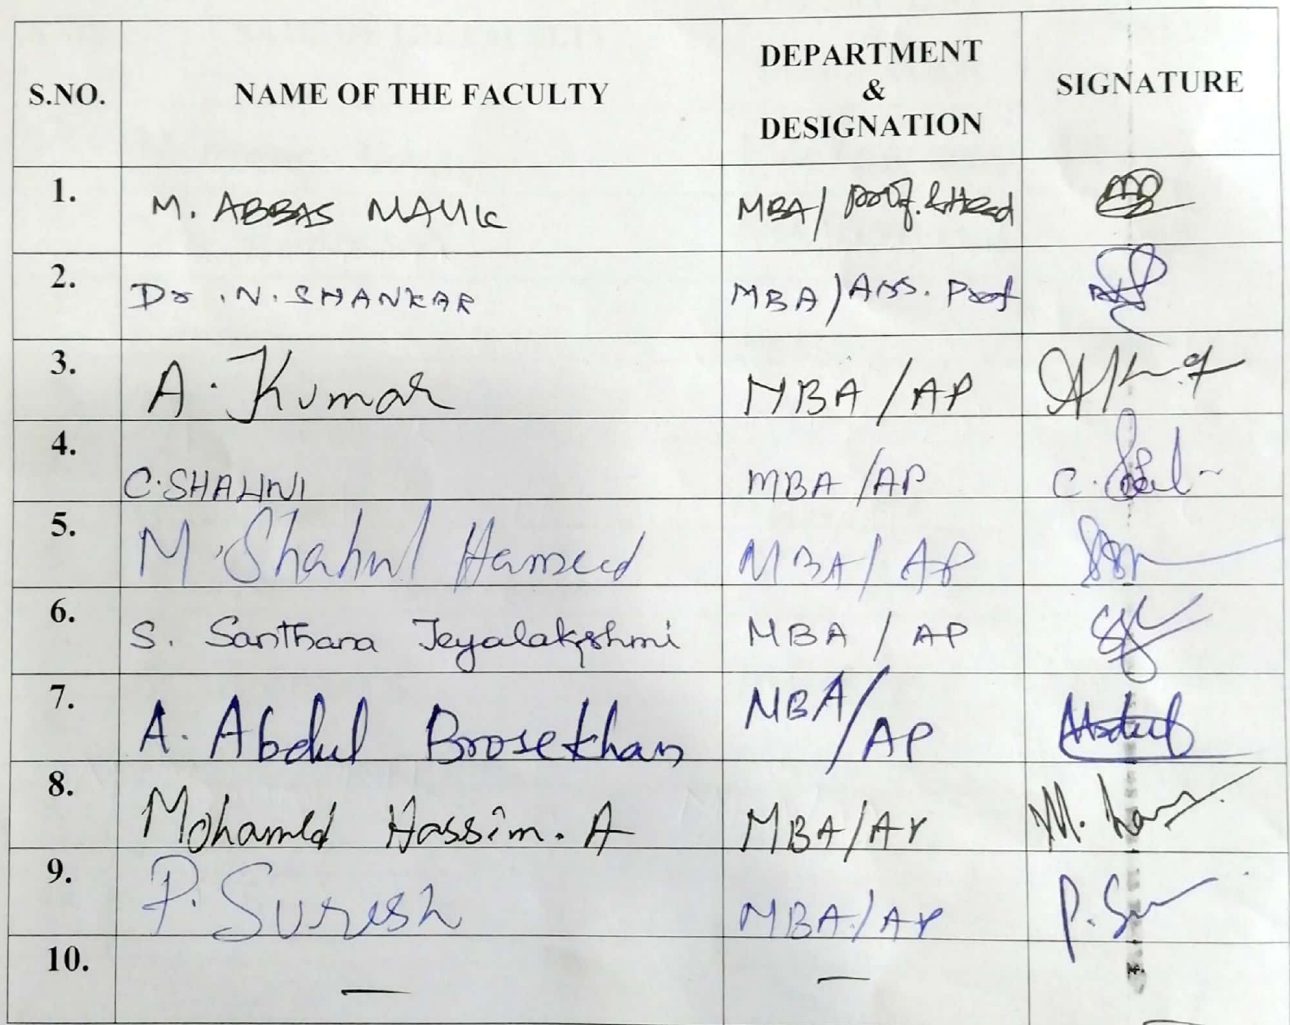 S.NO. NAME OF THE FACULTY DEPARTMENT & DESIGNATION SIGNATURE
1. M. ABBAS MALIK MBA/ Prof. & Head
2. Dr. N. SHANKAR MBA/Ass. Prof
3. A. Kumar MBA/AP
4. C. SHALINI MBA/AP C.
5. M. Shahul Hameed MBA/ AP
6. S. Santhana Jeyalakshmi MBA / AP
7. A. Abdul Brosekhan MBA/AP Abdul
8. Mohamed Hassim. A MBA/AP M.
9. P. Suresh MBA/AP P.
10. — —